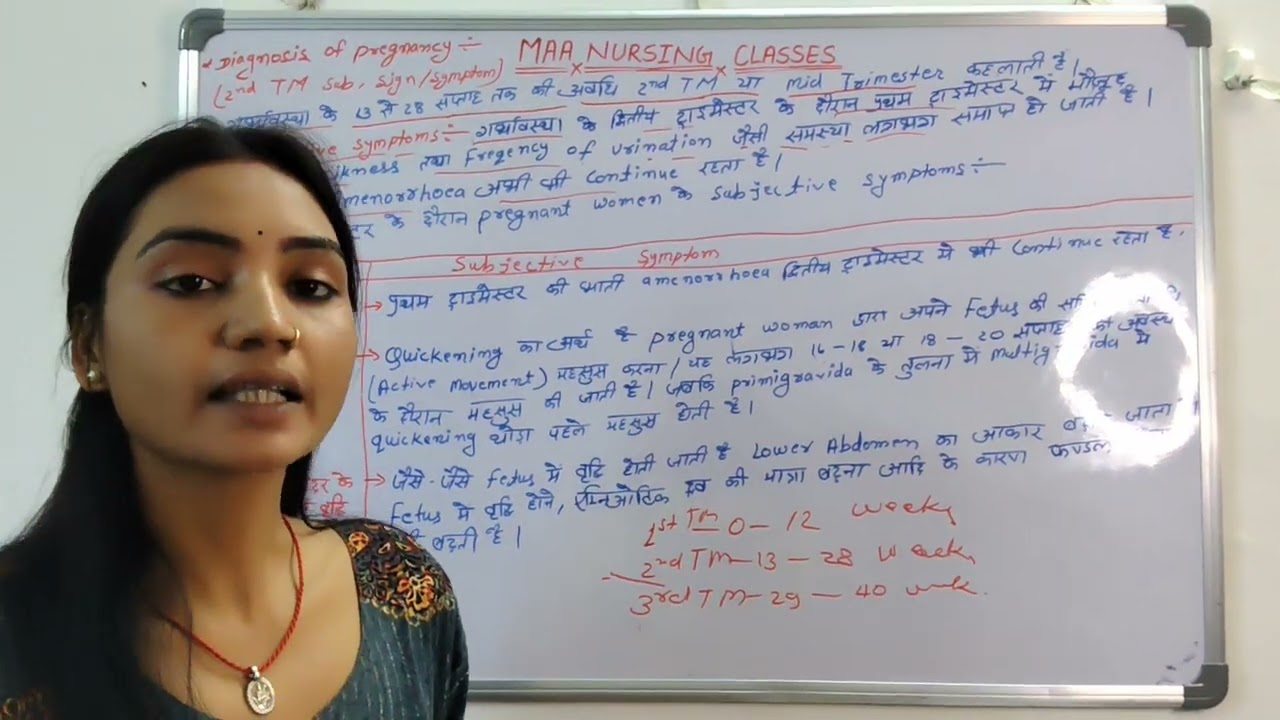 * Diagnosis of pregnancy :-
MAA NURSING CLASSES
(2nd TM Sub, sign/symptom)
गर्भावस्था के 13 से 28 सप्ताह तक की अवधि 2nd TM या Mid Trimester कहलाती है।
symptoms:- गर्भावस्था के द्वितीय ट्राइमेस्टर के दौरान प्रथम ट्राइमेस्टर में मौजूद
तथा Freqency of urination जैसी समस्या लगभग समाप्त हो जाती है।
menorrhoea अभी भी continue रहता है।
के दौरान pregnant women के subjective symptoms:-
Subjective symptom
→ प्रथम ट्राइमेस्टर की भाती amenorrhoea द्वितीय ट्राइमेस्टर मे भी continue रहता है.
→ Quickening का अर्थ है pregnant woman द्वारा अपने Fetus की
(Active movement) महसूस करना / यह लगभग 16-18 या 18-20 सप्ताह की
के दौरान महसूस की जाती है। जबकि primigravida के तुलना मे multigravida मे
quickening थोड़ा पहले महसूस होती है।
→ जैसे-जैसे fetus में वृद्धि होती जाती है Lower Abdomen का आकार जाता
Fetus मे वृद्धि होने, एम्निओटिक द्रव की मात्रा बढ़ना आदि के कारण फण्डल
बढ़ती है।
के
वृद्धि
1st TM 0-12 weeks
2nd TM-13-28 weeks
3rd TM-29-40 week.